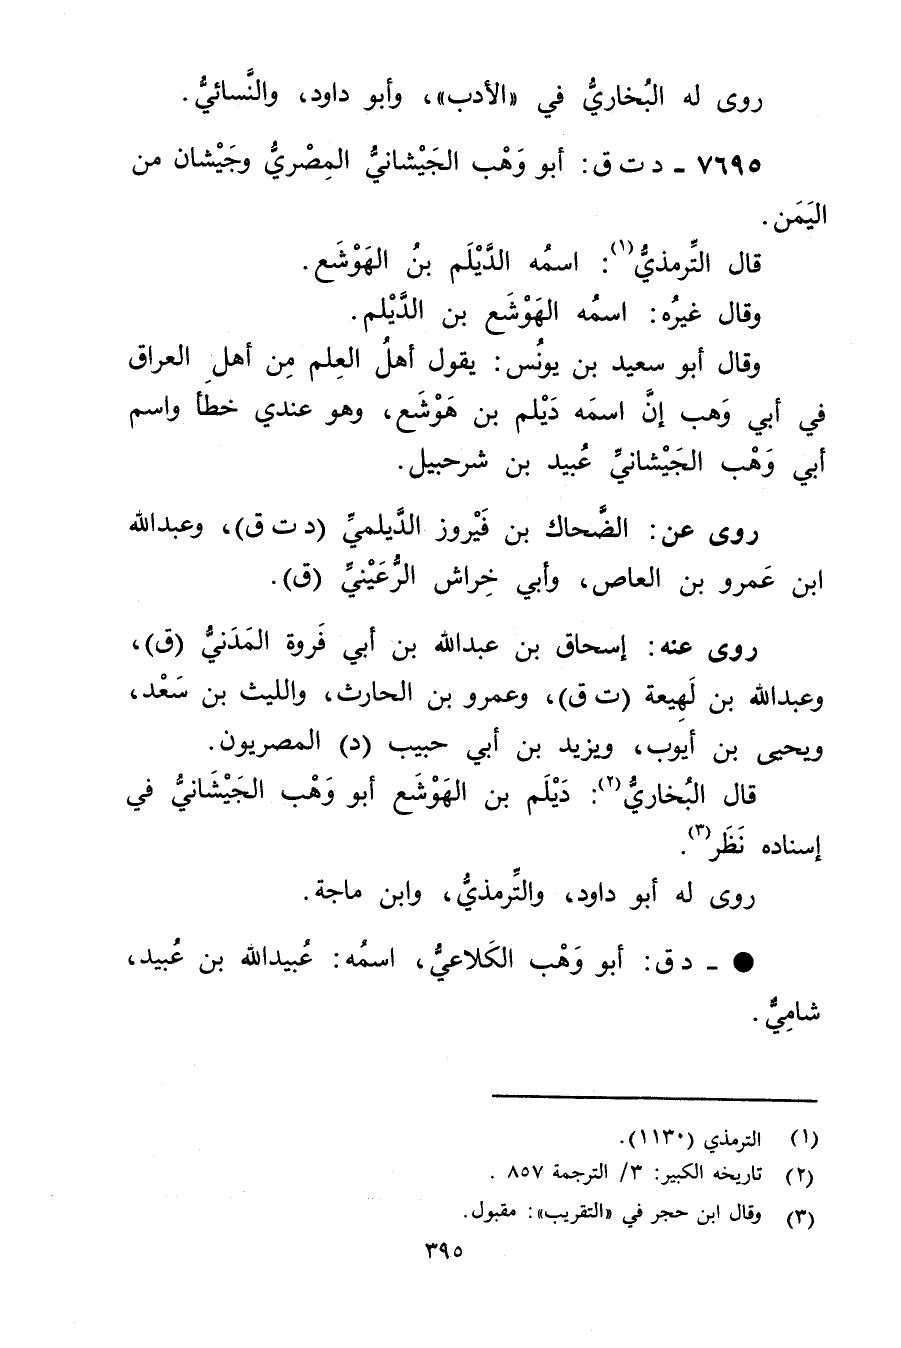 روى له البُخاريُّ في «الأدب»، وأبو داود، والنَّسائيُّ.
٧٦٩٥ ـ د ت ق: أبو وَهْب الجَيْشانيُّ المِصْريُّ وجَيْشان من
اليَمَن.
قال التِّرمذيُّ(١): اسمُه الدَّيْلَم بنُ الهَوْشَع.
وقال غيرُه: اسمُه الهَوْشَع بن الدَّيْلم.
وقال أبو سعيد بن يونُس: يقول أهلُ العِلم مِن أهلِ العراق
في أبي وَهب إنَّ اسمَه دَيْلم بن هَوْشَع، وهو عندي خطأ واسم
أبي وَهْب الجَيْشانيِّ عُبيد بن شرحبيل.
روى عن: الضَّحاك بن فَيْروز الدَّيلميِّ (د ت ق)، وعبدالله
ابن عَمرو بن العاص، وأبي خِراش الرُّعَيْنيِّ (ق).
روى عنه: إسحاق بن عبدالله بن أبي فَروة المَدَنيُّ (ق)،
وعبدالله بن لَهِيعة (ت ق)، وعمرو بن الحارث، والليث بن سَعْد،
ويحيى بن أيوب، ويزيد بن أبي حبيب (د) المصريون.
قال البُخاريُّ(٢): دَيْلَم بن الهَوْشَع أبو وَهْب الجَيْشَانيُّ في
إسناده نَظَر(٣).
روى له أبو داود، والتِّرمذيُّ، وابن ماجة.
● ـ د ق: أبو وَهْب الكَلاعيُّ، اسمُه: عُبيدالله بن عُبيد،
شامِيٌّ.
(١) الترمذي (١١٣٠).
(٢) تاريخه الكبير: ٣/ الترجمة ٨٥٧ .
(٣) وقال ابن حجر في «التقريب»: مقبول.
٣٩٥